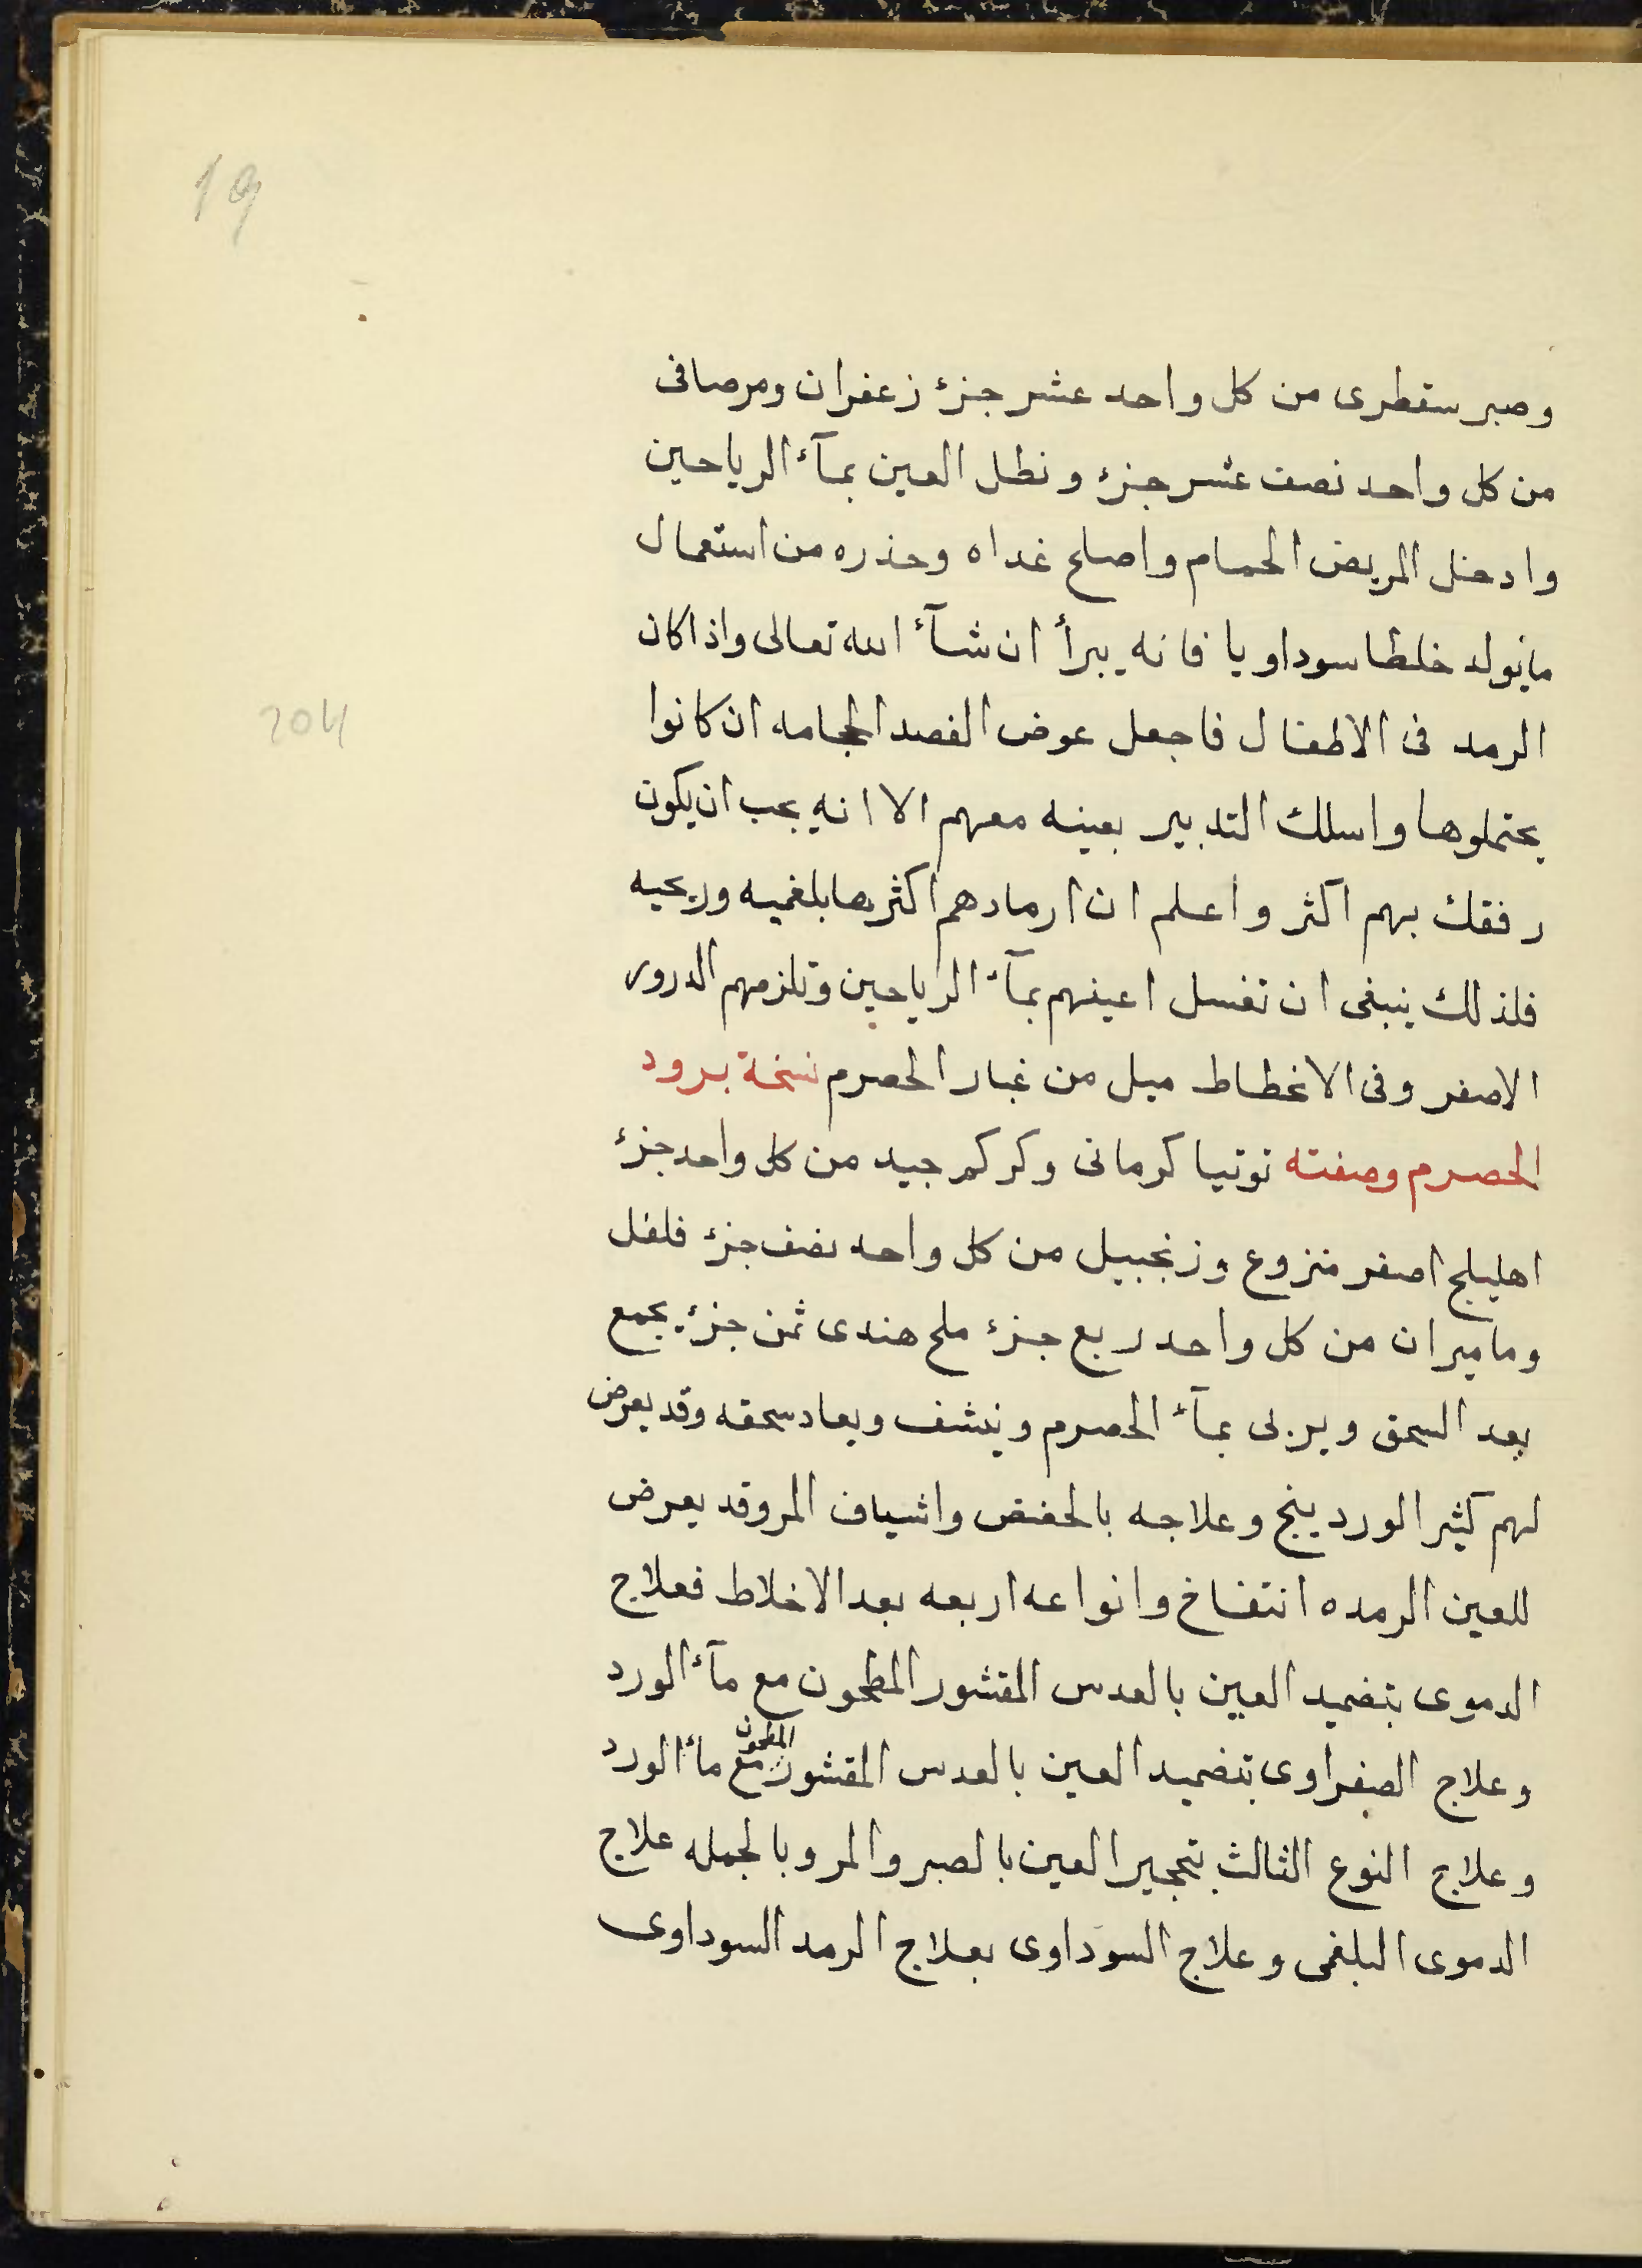 19
وصبر سقطرى من كل واحد عشر جزء زعفران ومرصافى
من كل واحد نصف عشر جزء ونطل العين بمآء الرياحين
وادخل المريض الحمام واصلح غداه وحذره من استعمال
مايولد خلطا سوداويا فانه يبرأ ان شآء الله تعالى واذا كان
204
الرمد فى الاطفال فاجعل عوض الفصد الحجامه ان كانوا
يحتملوها واسلك التدبير بعينه معهم الا انه يجب ان يكون
رفقك بهم اكثر واعلم ان ارمادهم اكثرها بلغميه وريحيه
فلذلك ينبغى ان تغسل اعينهم بمآء الرياحين وتلزمهم الدرور
الاصفر وفى الانحطاط ميل من غبار الحصرم نسخة برود
الحصرم وصفته توتيا كرمانى وكركم جيد من كل واحد جزء
اهليلج اصفر منزوع وزنجبيل من كل واحد نصف جزء فلفل
وماميران من كل واحد ربع جزء ملح هندى ثمن جزء يجمع
بعد السحق ويربى بمآء الحصرم وينشف ويعاد سحقه وقد يعرض
لهم كثيرا الوردينج وعلاجه بالحضض واشياف المر وقد يعرض
للعين الرمده انتفاخ وانواعه اربعه بعد الاخلاط فعلاج
الدموى بتضميد العين بالعدس المقشور المطحون مع مآء الورد
وعلاج الصفراوى بتضميد العين بالعدس المقشور المطحون مع مائالورد
وعلاج النوع الثالث بتحجير العين بالصبر والمر وبالجمله علاج
الدموى البلغمى وعلاج السوداوى بعلاج الرمد السوداوى